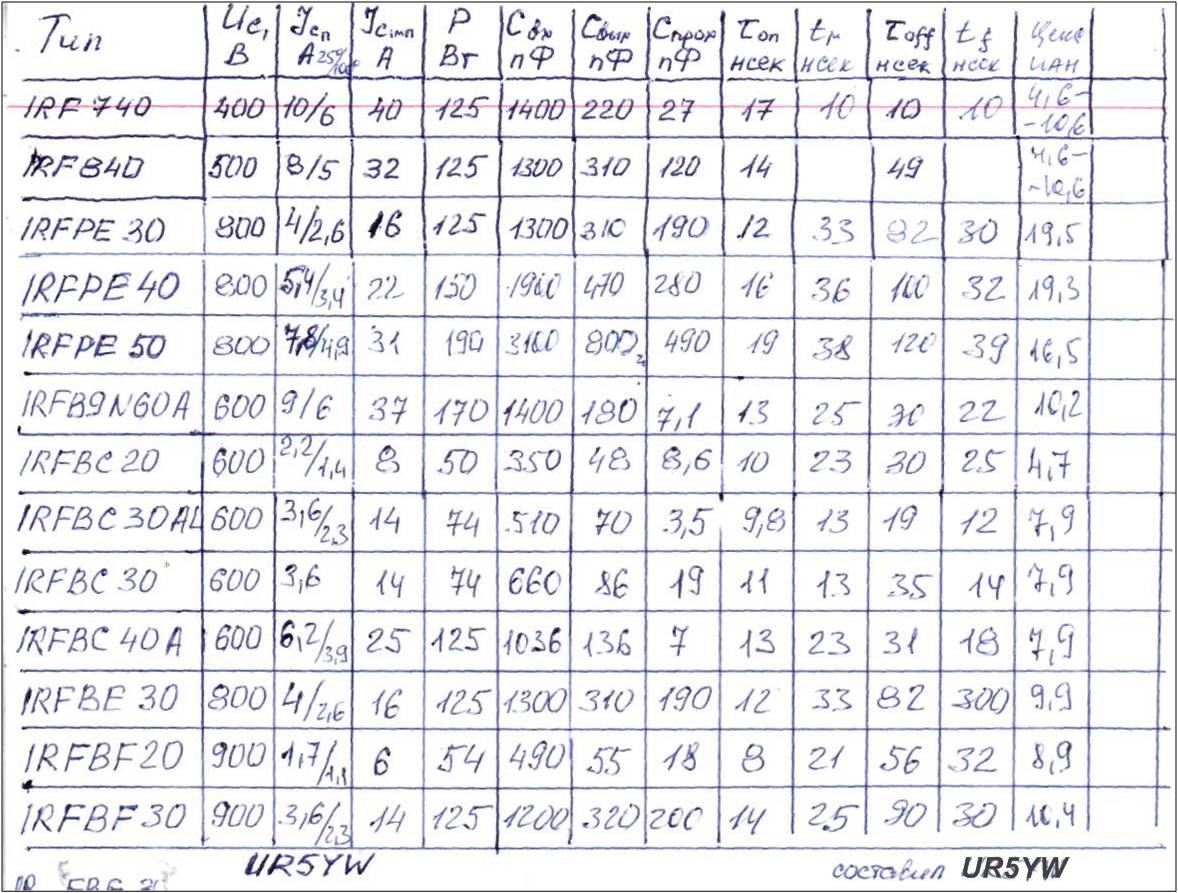 Тип Uс, В Iсп А 25°/100° Iс имп А P Вт Cвх пФ Cвых пФ Cпрох пФ τon нсек tr нсек τoff нсек tf нсек Цена UAH
IRF 740 400 10/6 40 125 1400 220 27 17 10 10 10 4,6–-10,6
IRF840 500 8/5 32 125 1300 310 120 14 49 4,6–-10,6
IRFPE 30 800 4/2,6 16 125 1300 310 190 12 33 82 30 19,5
IRFPE 40 800 5,4/3,4 22 150 1900 470 280 16 36 100 32 19,3
IRFPE 50 800 7,8/4,9 31 190 3100 800 490 19 38 120 39 16,5
IRFB9N60A 600 9/6 37 170 1400 180 7,1 13 25 30 22 10,2
IRFBC 20 600 2,2/1,4 8 50 350 48 8,6 10 23 30 25 4,7
IRFBC 30AL 600 3,6/2,3 14 74 510 70 3,5 9,8 13 19 12 7,9
IRFBC 30 600 3,6 14 74 660 86 19 11 13 35 14 7,9
IRFBC 40 A 600 6,2/3,9 25 125 1036 136 7 13 23 31 18 7,9
IRFBE 30 800 4/2,6 16 125 1300 310 190 12 33 82 300 9,9
IRFBF20 900 1,7/1,1 6 54 490 55 18 8 21 56 32 8,9
IRFBF 30 900 3,6/2,3 14 125 1200 320 200 14 25 90 30 10,4
UR5YW составил UR5YW